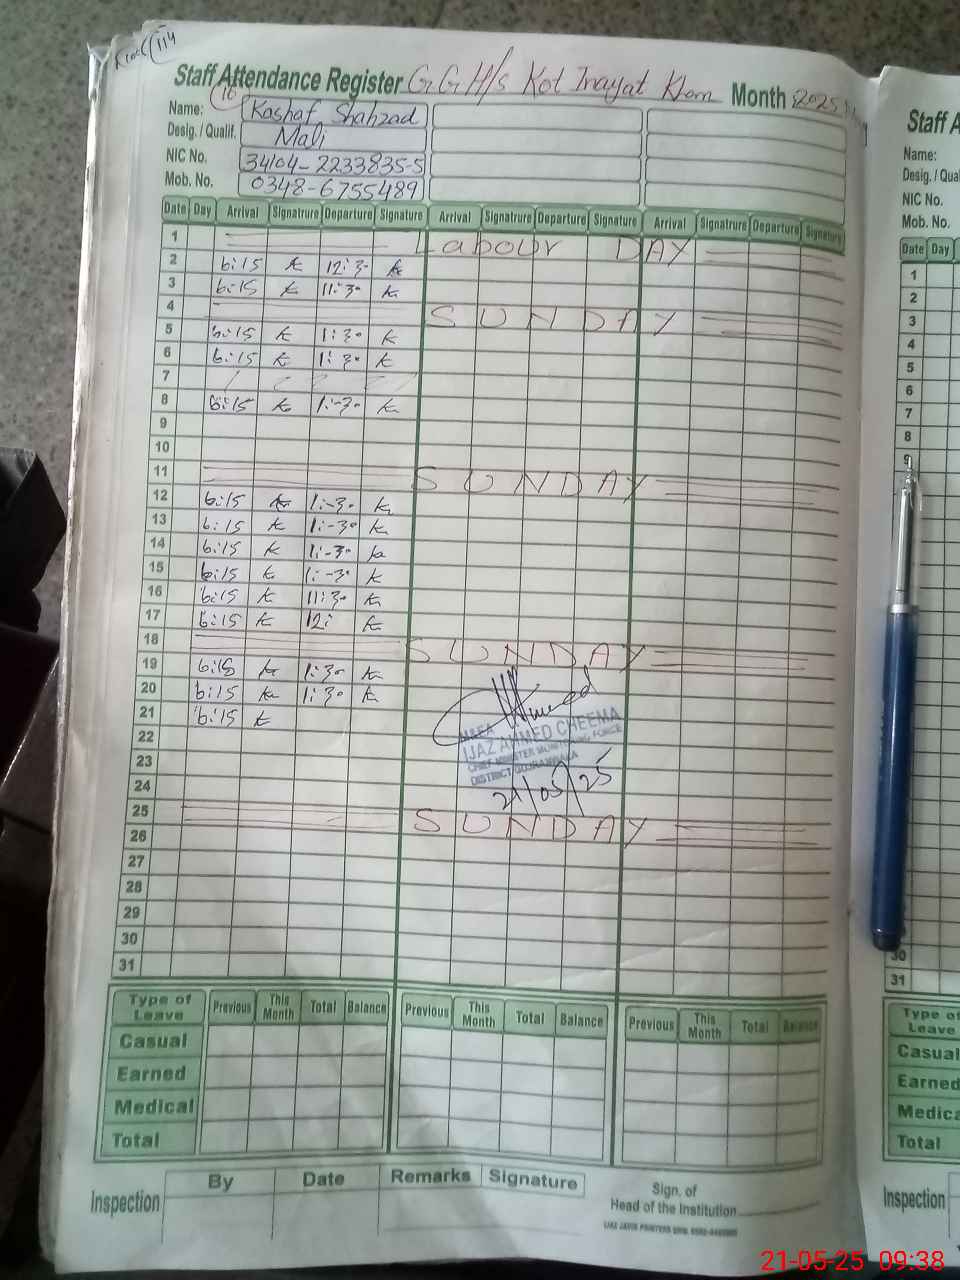 114
Staff Attendance Register G.G.H/s Kot Inayat Khan Month 2025
16
Name: Kashaf Shahzad
Desig. / Qualif. Mali
NIC No. 34104-2233835-5
Mob. No. 0348-6755489
Date Day Arrival Signatrure Departure Signature Arrival Signatrure Departure Signature Arrival Signatrure Departure Signature
1 Labour DAY
2 6:15 k 12:3- k
3 6:15 k 11:30 k
4 SUNDAY
5 6:15 k 1:30 k
6 6:15 k 1:30 k
7
8 6:15 k 1:-30 k
9
10
11 SUNDAY
12 6:15 k 1:-30 k
13 6:15 k 1:-30 k
14 6:15 k 1:-30 k
15 6:15 k 1:-30 k
16 6:15 k 11:30 k
17 6:15 k 12: k
18 SUNDAY
19 6:15 k 1:30 k
20 6:15 k 1:30 k
21 6:15 k
22
M&EA
IJAZ AHMED CHEEMA
CHIEF MINISTER MONITORING FORCE
DISTRICT GUJRANWALA
21/05/25
23
24
25 SUNDAY
26
27
28
29
30
31
Type of Leave Previous This Month Total Balance Previous This Month Total Balance Previous This Month Total Balance
Casual
Earned
Medical
Total
Inspection By Date Remarks Signature
Sign. of
Head of the Institution
Staff A
Name:
Desig. / Qual
NIC No.
Mob. No.
Date Day
1
2
3
4
5
6
7
8
9
30
31
Type o
Leave
Casual
Earned
Medic
Total
Inspection
21-05-25 09:38